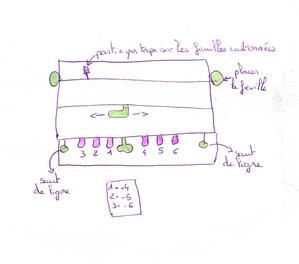 partie qui tape sur les feuilles cartonnées
placer
la feuille
3 2 1 4 5 6
saut
de ligne
saut
de ligne
1 = 4
2 = 5
3 = 6